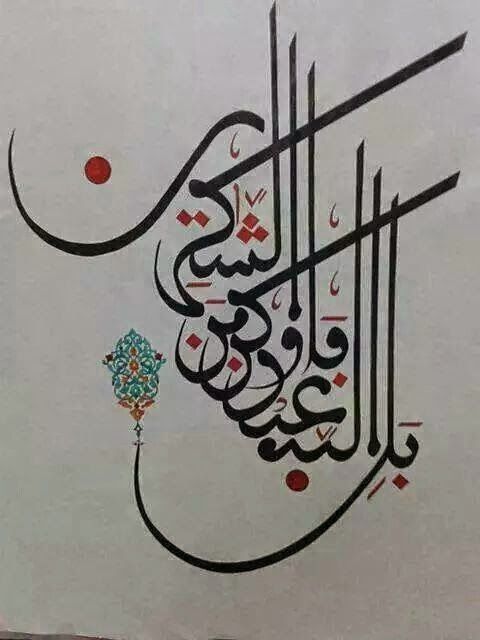 بَلِ الله فَاعبد وكن مِنَ الشّٰكرين